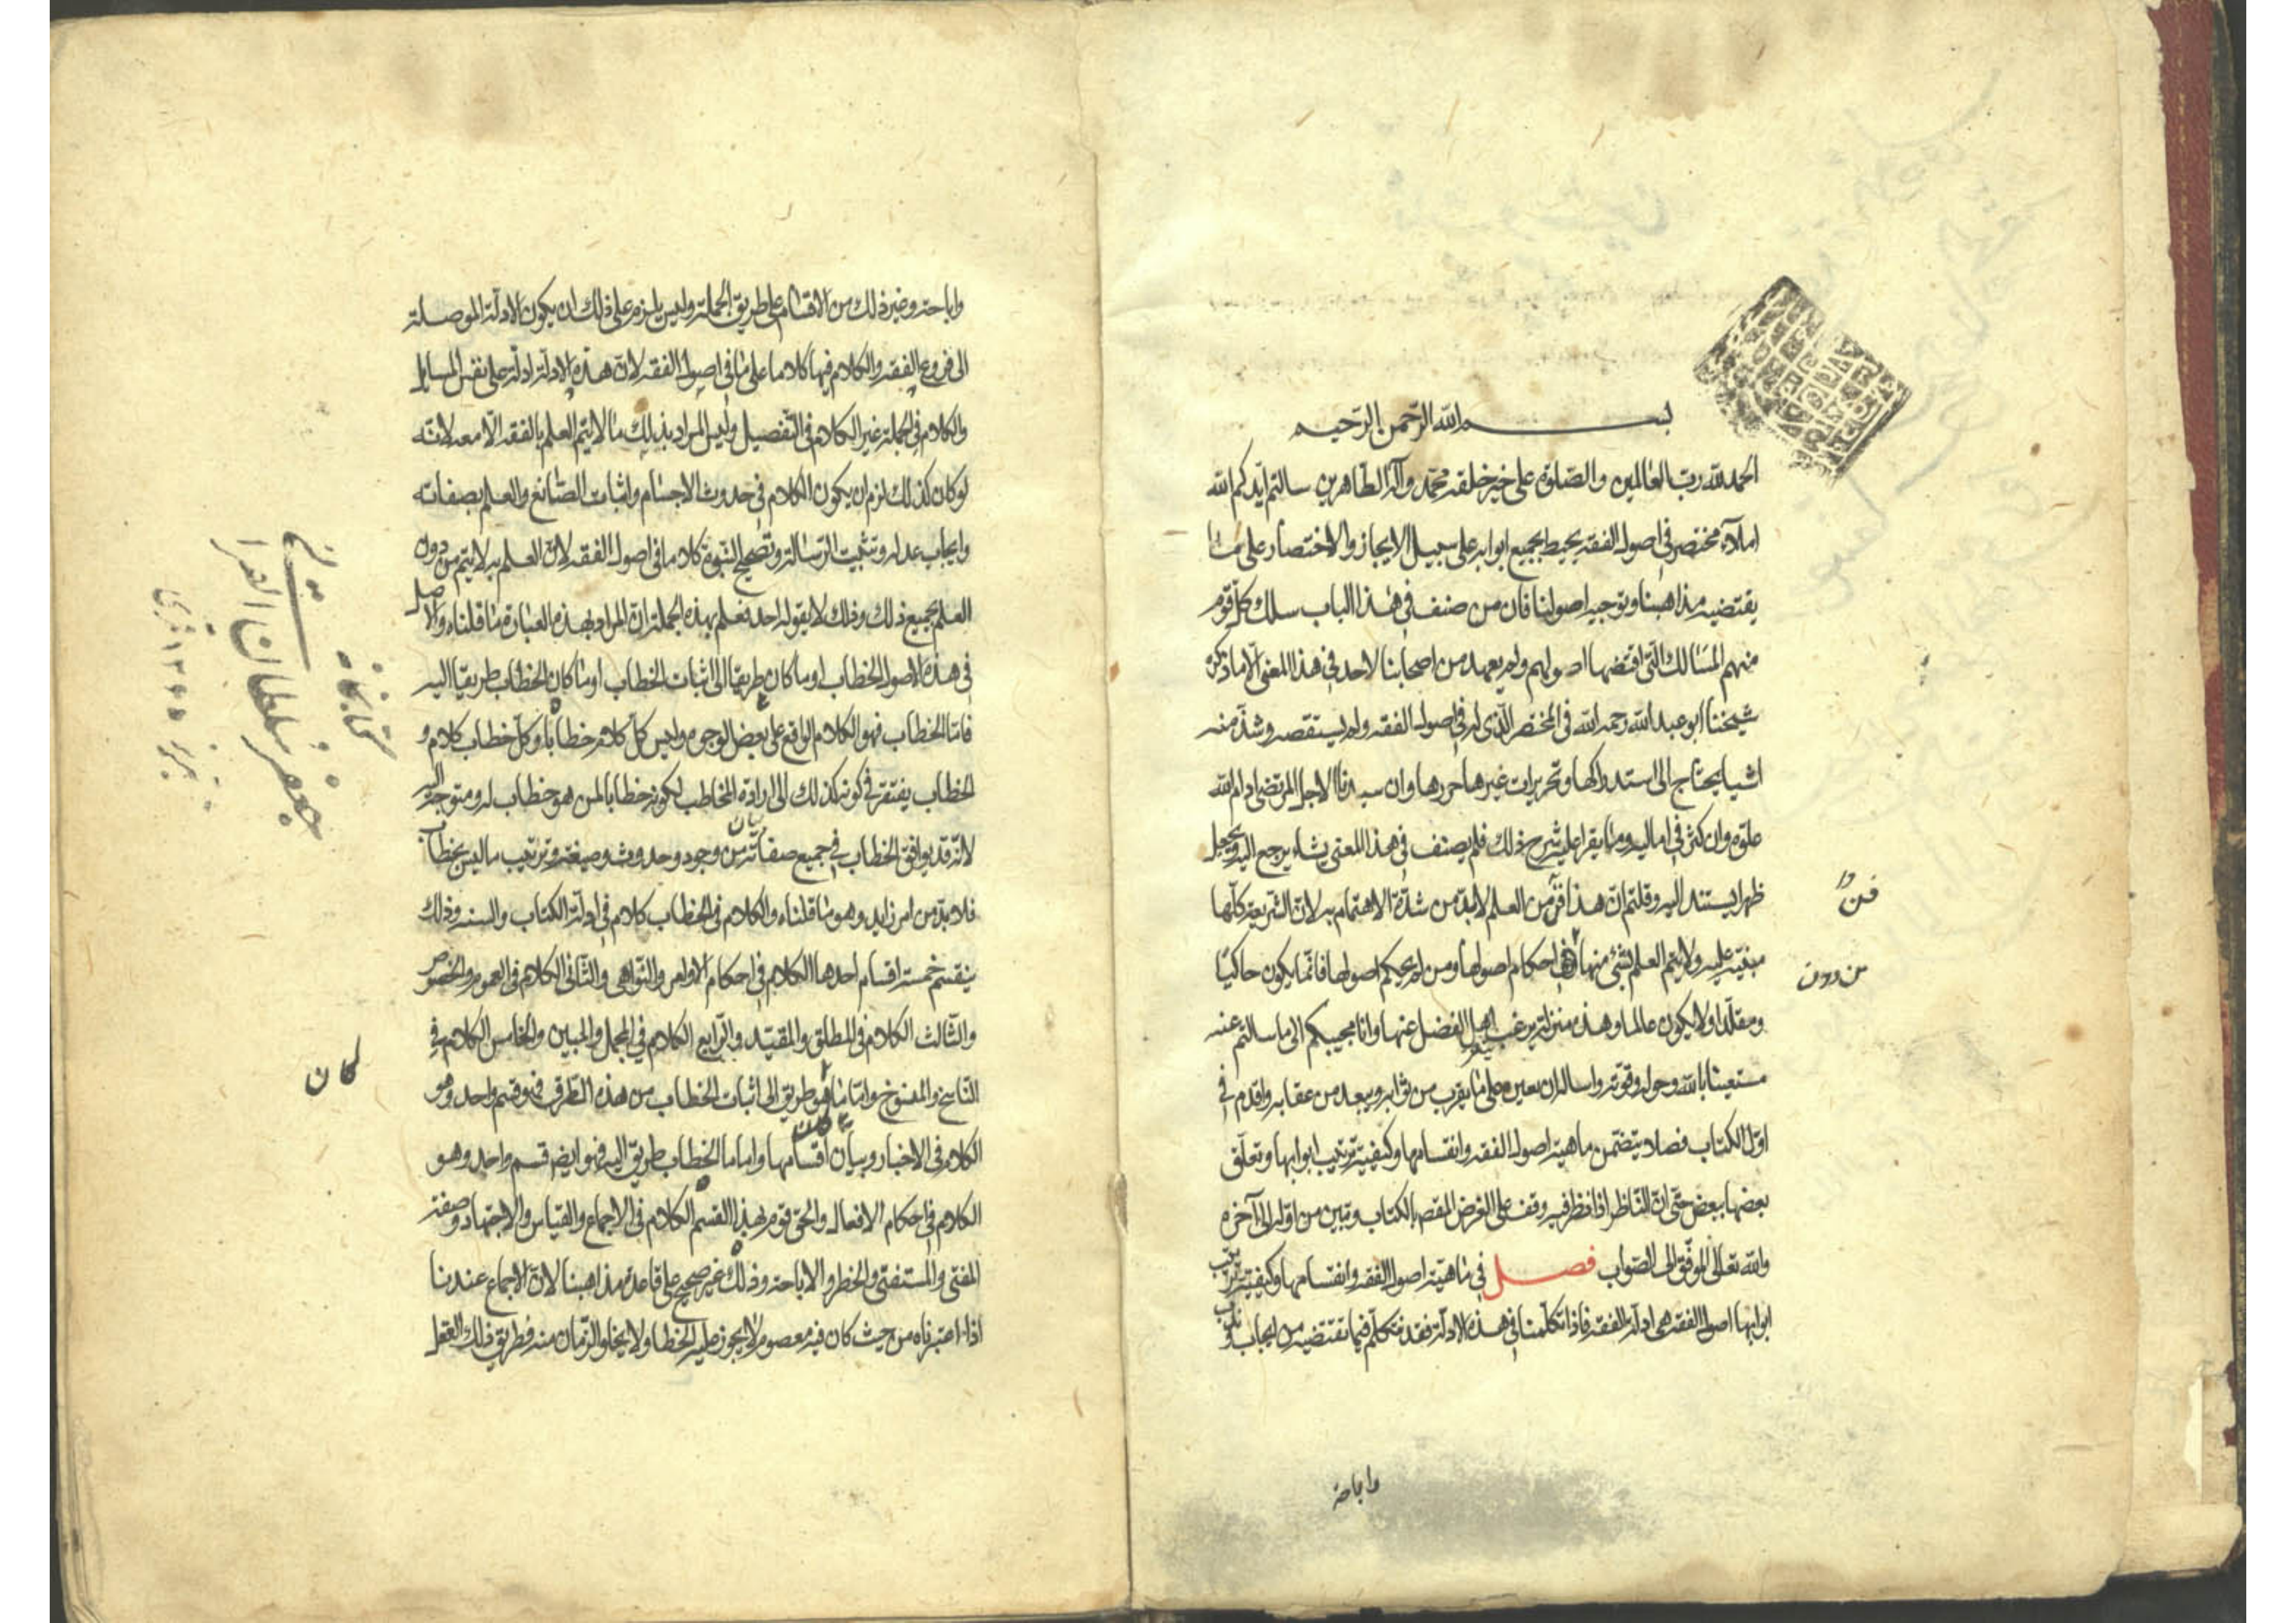 بسم الله الرحمن الرحيم
الحمد لله رب العالمين والصلوة على خير خلقه محمد وآله الطاهرين سالتم ايدكم الله
املاء مختصر في اصول الفقه يحيط بجميع ابوابه على سبيل الايجاز والاختصار على ما
يقتضيه مذاهبنا وتوجيه اصولنا فان من صنف في هذا الباب سلك كل قوم
منهم المسالك التي اقتضها اصولهم ولم يعهد من اصحابنا لاحد في هذا المعنى الا ما ذكره
شيخنا ابو عبد الله رحمه الله في المختصر الذي له في اصول الفقه ولم يستقصه وشذ منه
اشيا يحتاج الى استدراكها وتحريرات غير ها حررها وان سيدنا الاجل المرتضى ادام الله
علوه وان كثر في اماليه وما يقرا عليه شرح ذلك فلم يصنف في هذا المعنى يشاء يرجع اليه ويجعل
ظهرا يستند اليه وقلتم ان هذا فن من العلم لابد من شدة الاهتمام به لان الشريعة كلها
فن
مبنية عليه ولا يتم العلم بشئ منها احكام اصولها ومن لم يحكم اصولها فانما يكون حاكيا
من دون
ومقلدا ولا يكون عالما وهذه منزلة يرغب اهل الفضل عنها وانا مجيبكم الى ما سالتم عنه
مستعينا بالله وحوله وقوته واساله ان يعين على ما يقرب من ثوابه ويبعد من عقابه واقدم في
اول الكتاب فصلا يتضمن ماهية اصول الفقه وانقسامها وكيفية ترتيب ابوابها وتعلق
بعضها ببعض حتى ان الناظر اذا نظر فيه وقف على الغرض المقصد بالكتاب وتبين من اوله الى آخره
والله تعالى الموفق الى الصواب فصل في ماهية اصول الفقه وانقسامها وكيفية ترتيب
ابوابها اصول الفقه هي ادلة الفقه فاذا تكلمنا في هذه الادلة فقد نتكلم فيما تقتضيه من ايجاب وندب و
واباحة
واباحة وغير ذلك من الاقسام على طريق الجملة وليس يلزم على ذلك ان يكون الادلة الموصلة
الى فروع الفقه والكلام فيها كلاما على ما في اصول الفقه لان هذه الادلة ادلة على نفس المسايل
والكلام في الجملة غير الكلام في التفصيل وليس المراد بذلك ما لا يتم العلم بالفقه الا معه لانه
لو كان كذلك لزم ان يكون الكلام في حدوث الاجسام واثبات الصانع والعلم بصفاته
وايجاب عدله وتثبيت الرسالة وتصحيح النبوة كلاما في اصول الفقه لان العلم به لا يتم من دون
العلم بجميع ذلك وذلك لا يقوله احد فعلم بهذه الجملة ان المراد بهذه العبارة ما قلناه والاصل
في هذه الاصول الخطاب او ما كان طريقا الى اثبات الخطاب او ما كان الخطاب طريقا اليه
فاما الخطاب فهو الكلام الواقع على بعض الوجوه وليس كل كلام خطابا وكل خطاب كلام و
الخطاب يفتقر في كونه كذلك الى ارادة المخاطب لكونه خطابا لمن هو خطاب له ومتوجه اليه
لانه قد يوافق الخطاب في جميع صفاته من وجود وحدوث وصيغة وترتيب ما ليس بخطاب
فلا بد من امر زايد وهو ما قلناه والكلام في الخطاب كلام في ادلة الكتاب والسنه وذلك
ينقسم خمسة اقسام احدها الكلام في احكام الاوامر والنواهي والثاني الكلام في العموم والخصوص
والثالث الكلام في المطلق والمقيد والرابع الكلام في المجمل والمبين والخامس الكلام في
الناسخ والمنسوخ واما ما هو طريق الى اثبات الخطاب من هذه الطرق فهو قسم واحد وهو
كان
الكلام في الاخبار وبيان اقسامها واما ما الخطاب طريق اليه فهو ايضا قسم واحد وهو
الكلام في احكام الافعال والحق قوم بهذا القسم الكلام في الاجماع والقياس والاجتهاد وصفة
المفتي والمستفتي والحظر والاباحة وذلك غير صحيح على قاعدة مذاهبنا لان الاجماع عندنا
اذا اعتبرناه من حيث كان فيه معصوم لا يجوز عليه الخطا ولا يخلو الزمان منه فطريق ذلك العقل
كتابخانه
جعفر سلطان القرا